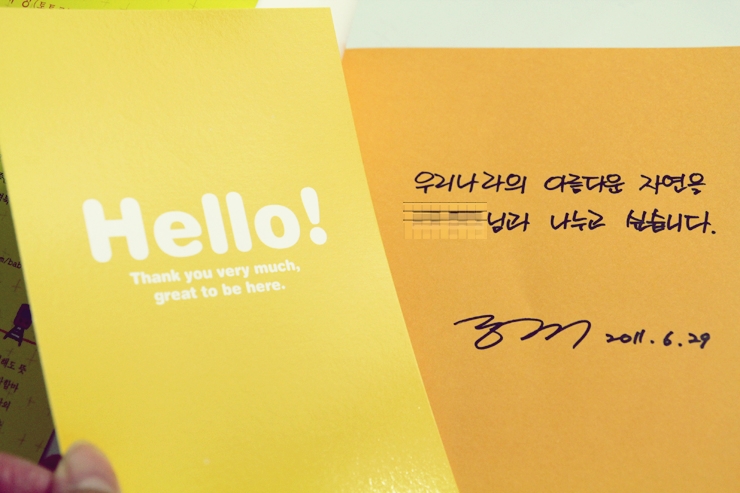 Hello!
Thank you very much,
great to be here.
우리나라의 아름다운 자연을
님과 나누고 싶습니다.
2011.6.29